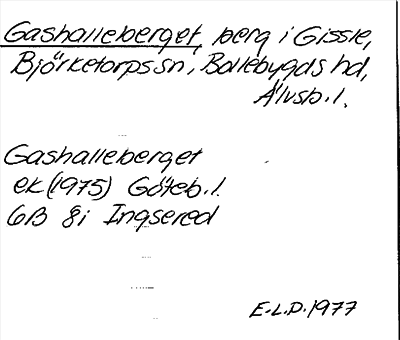 Gashalleberget, berg i Gissle,
Björketorps sn, Bollebygds hd,
Älvsb. l.
Gashalleberget
ek (1975) Göteb. l.
6B 8i Ingsered
E.L.D. 1977